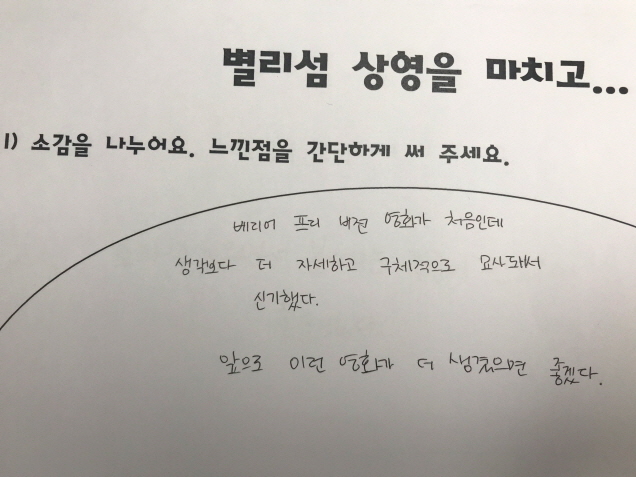 별리섬 상영을 마치고...
1) 소감을 나누어요. 느낀점을 간단하게 써 주세요.
베리어 프리 버전 영화가 처음인데
생각보다 더 자세하고 구체적으로 묘사돼서
신기했다.
앞으로 이런 영화가 더 생겼으면 좋겠다.